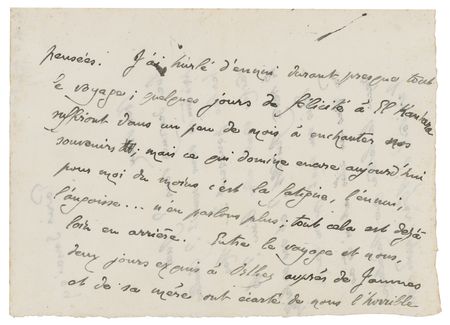 pensées. J'ai hurlé d'ennui durant presque tout
le voyage; quelques jours de félicité à El Kantara
suffiront dans un peu de mois à enchanter nos
souvenirs; mais ce qui domine encore aujourd'hui
pour moi du moins c'est la fatigue, l'ennui,
l'angoisse... n'en parlons plus; tout cela est déjà
loin en arrière. Entre le voyage et nous,
deux jours exquis à Orthez auprès de Jammes
et de sa mère ont écarté de nous l'horrible